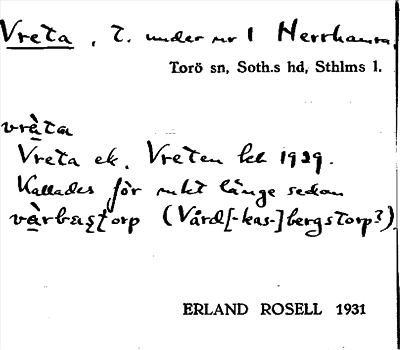 Vreta, T. under nr 1 Herrhamra,
Torö sn, Soth.s hd, Sthlms l.
vrà̱ta
Vreta ek. Vreten kbl 1929.
Kallades för mkt länge sedan
và̱rbas̨torp (Vård[-kas-]bergstorp?).
ERLAND ROSELL 1931